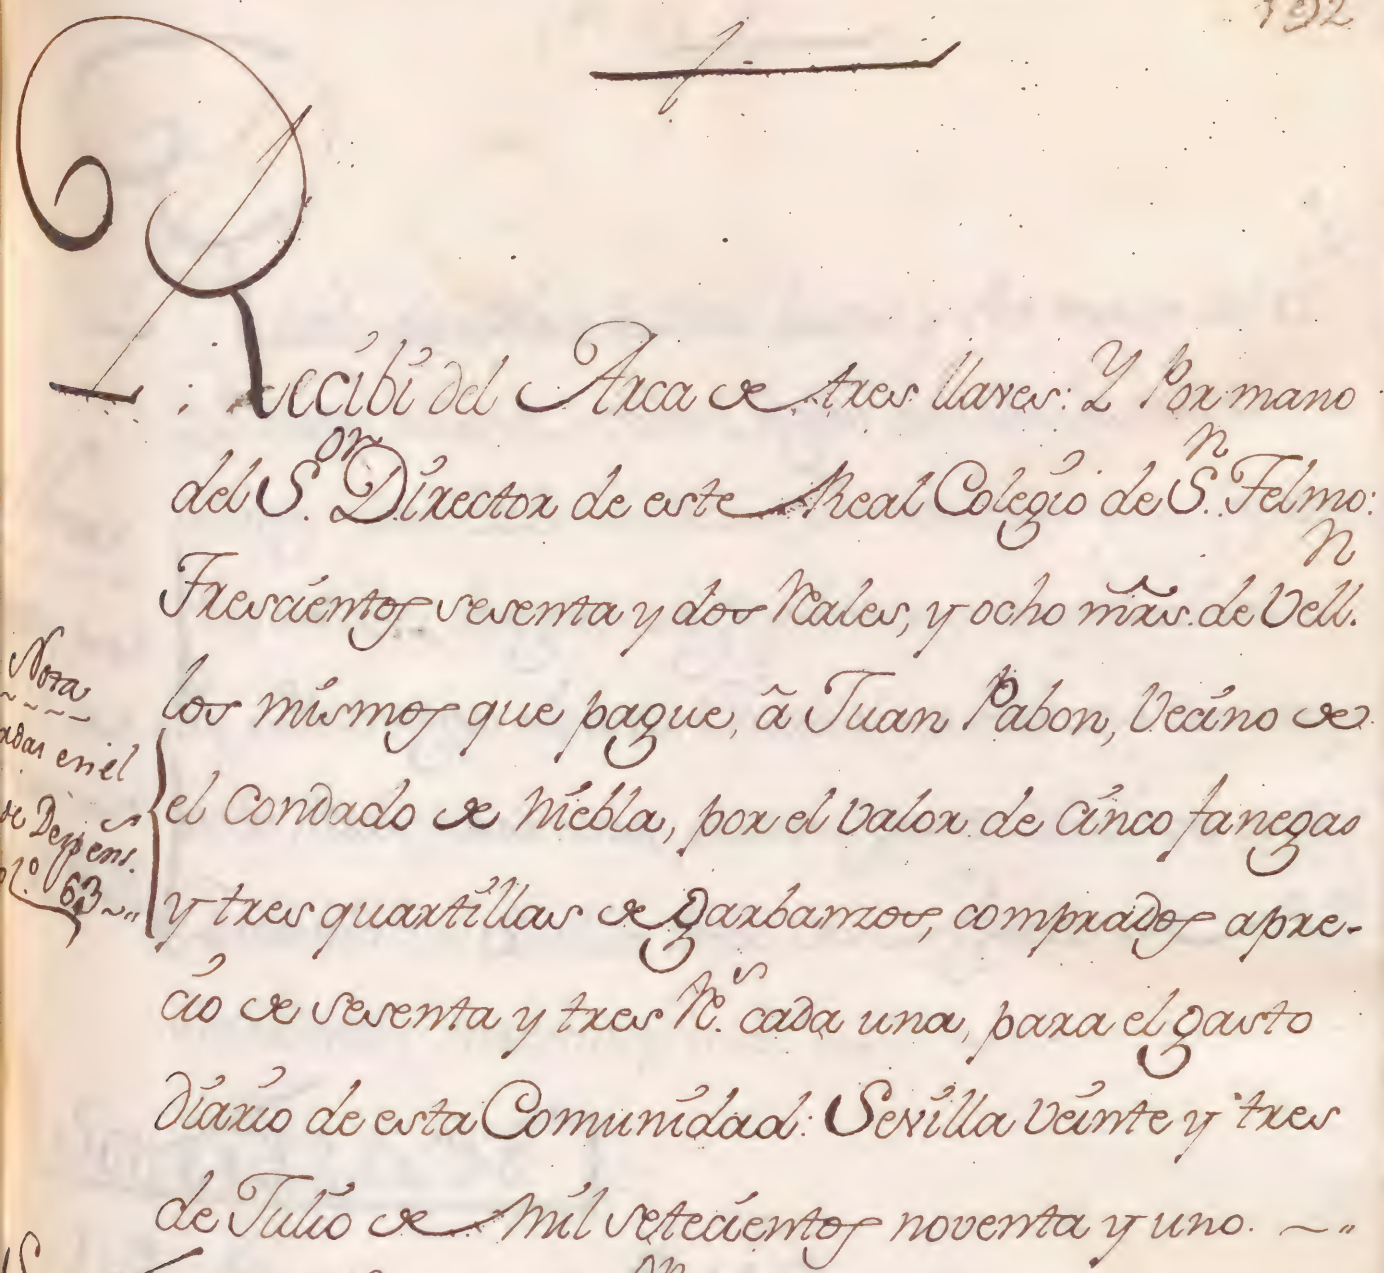 192
Recibi del Arca de tres llaves: Y Por mano
del S.or Director de este Real Colegio de S.n Telmo:
Trescientos sesenta y dos Reales, y ocho mrs. de Vell.n
los mismos que pague, â Juan Pabon, Vecino de
el Condado de Niebla, por el valor de cinco fanegas
y tres quartillas de garbanzos, comprados apre-
cio de sesenta y tres R.s cada una, para el gasto
diario de esta Comunidad: Sevilla veinte y tres
de Julio de Mil setecientos noventa y uno. ~"
Nota
adas en el
de Despens.s
63 ~"